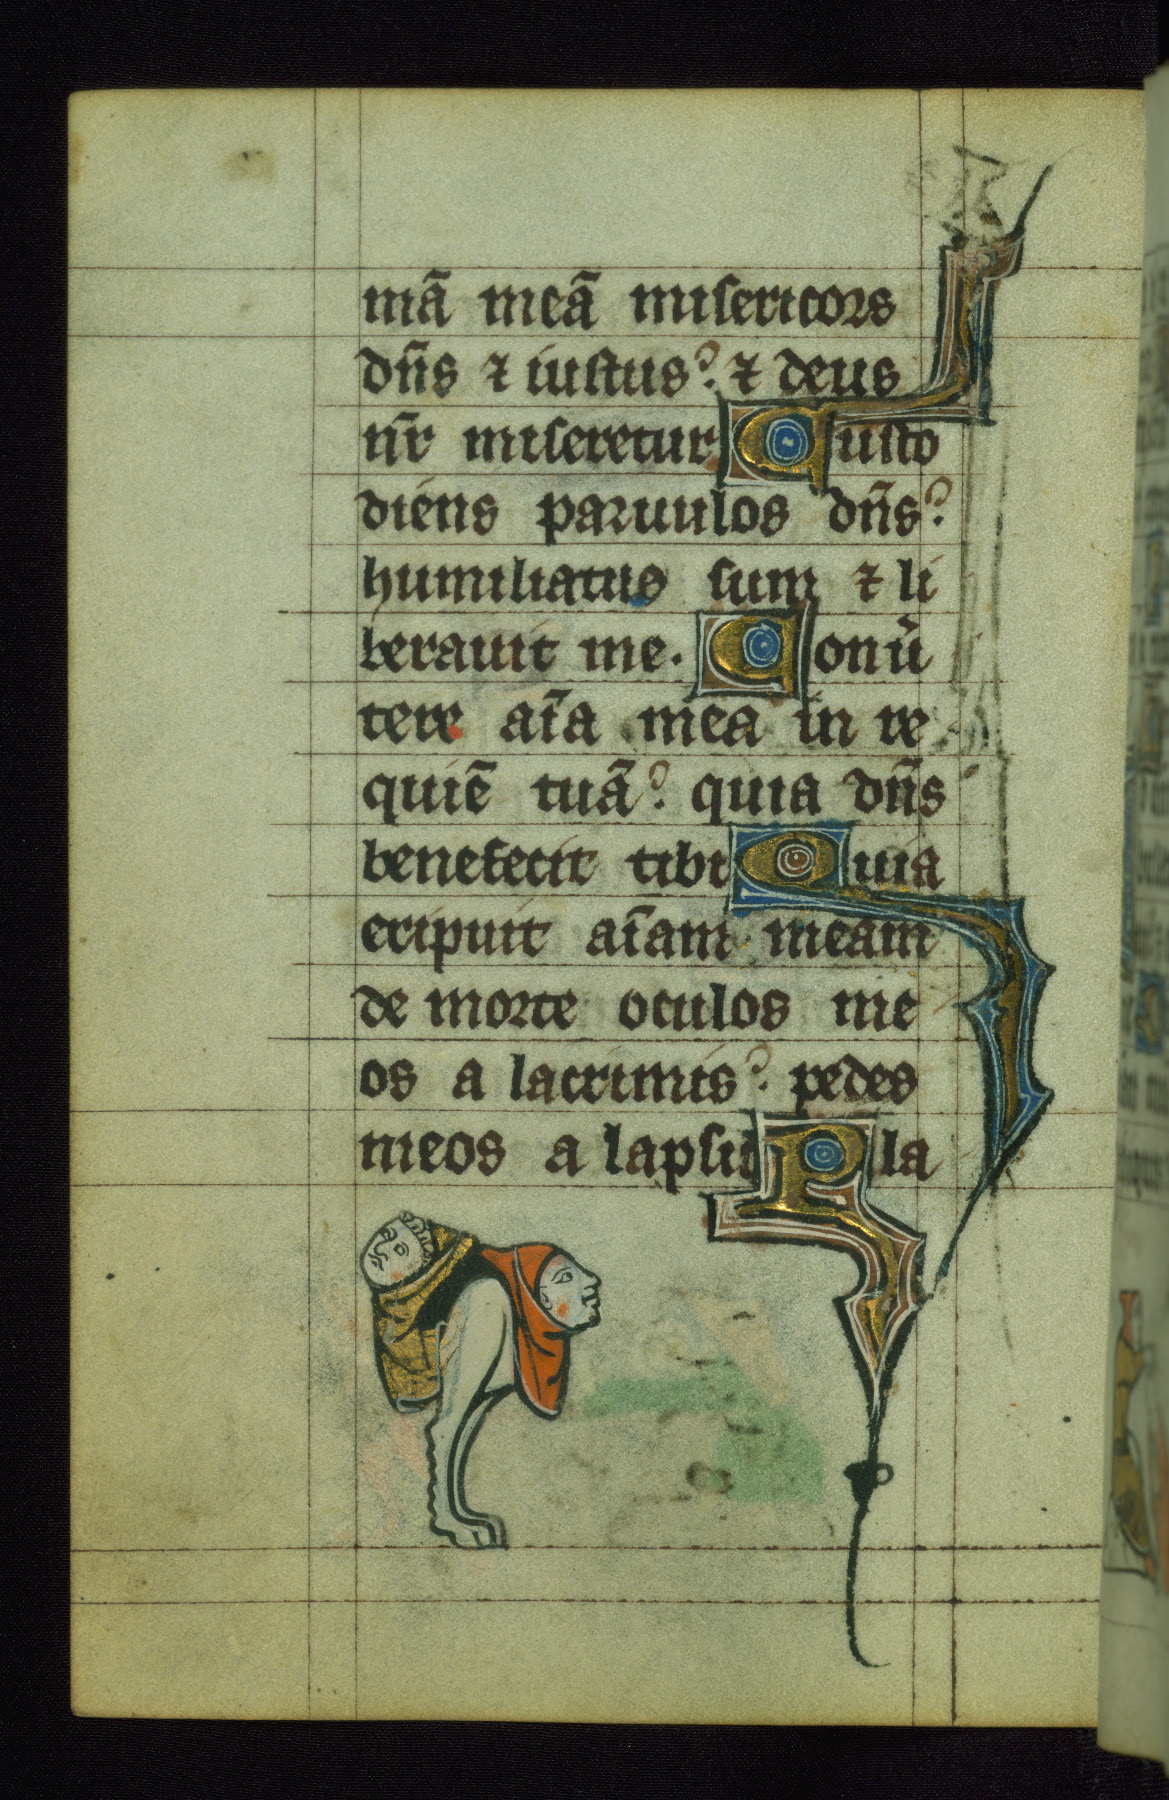 mā meā misericors
dn̄s ⁊ iustus? ⁊ deus
nr̄ miseretur Custo
diens paruulos dn̄s?
humiliatus sum ⁊ li
berauit me. Conu̾
tere aīa mea in re
quiē tuā? quia dn̄s
benefecit tibi Quia
eripuit aīam meam
de morte oculos me
os a lacrimis? pedes
meos a lapsu Pla